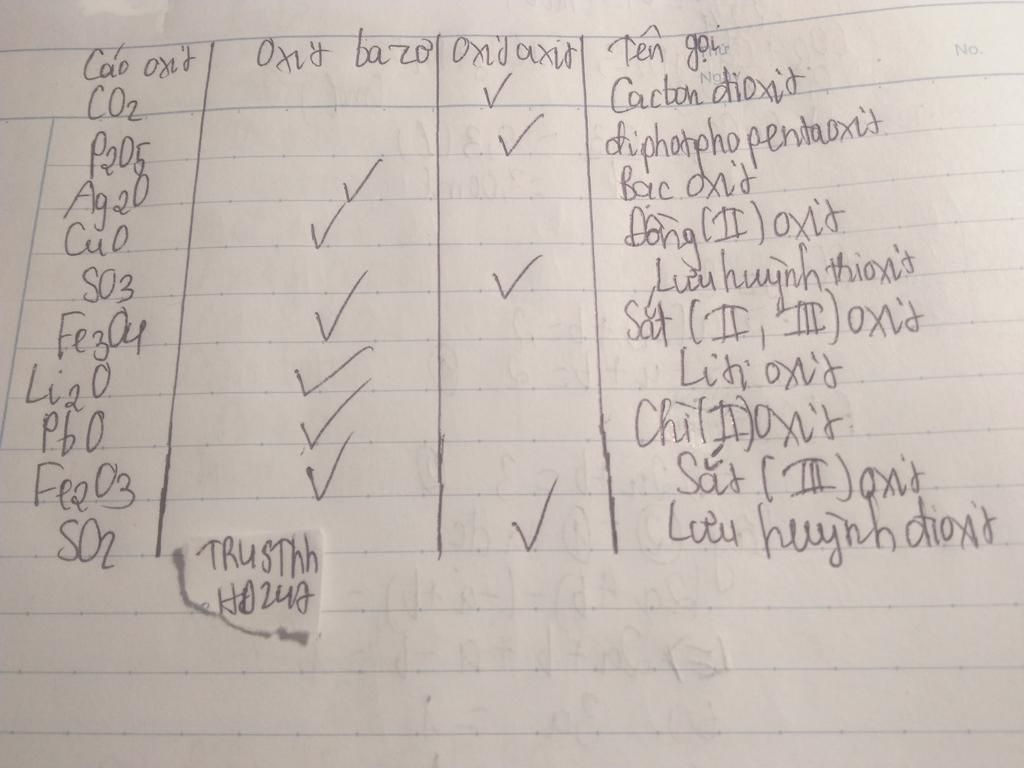 Các oxit Oxit bazơ Oxit axit Tên gọi
CO2 ✓ Cacbon đioxit
P2O5 ✓ điphotpho pentaoxit
Ag2O ✓ Bạc oxit
CuO ✓ Đồng (II) oxit
SO3 ✓ Lưu huỳnh thioxit
Fe3O4 ✓ Sắt (II, III) oxit
Li2O ✓ Liti oxit
PbO ✓ Chì (II) oxit
Fe2O3 ✓ Sắt (III) oxit
SO2 ✓ Lưu huỳnh đioxit
TRUSThh
HĐ247
No.